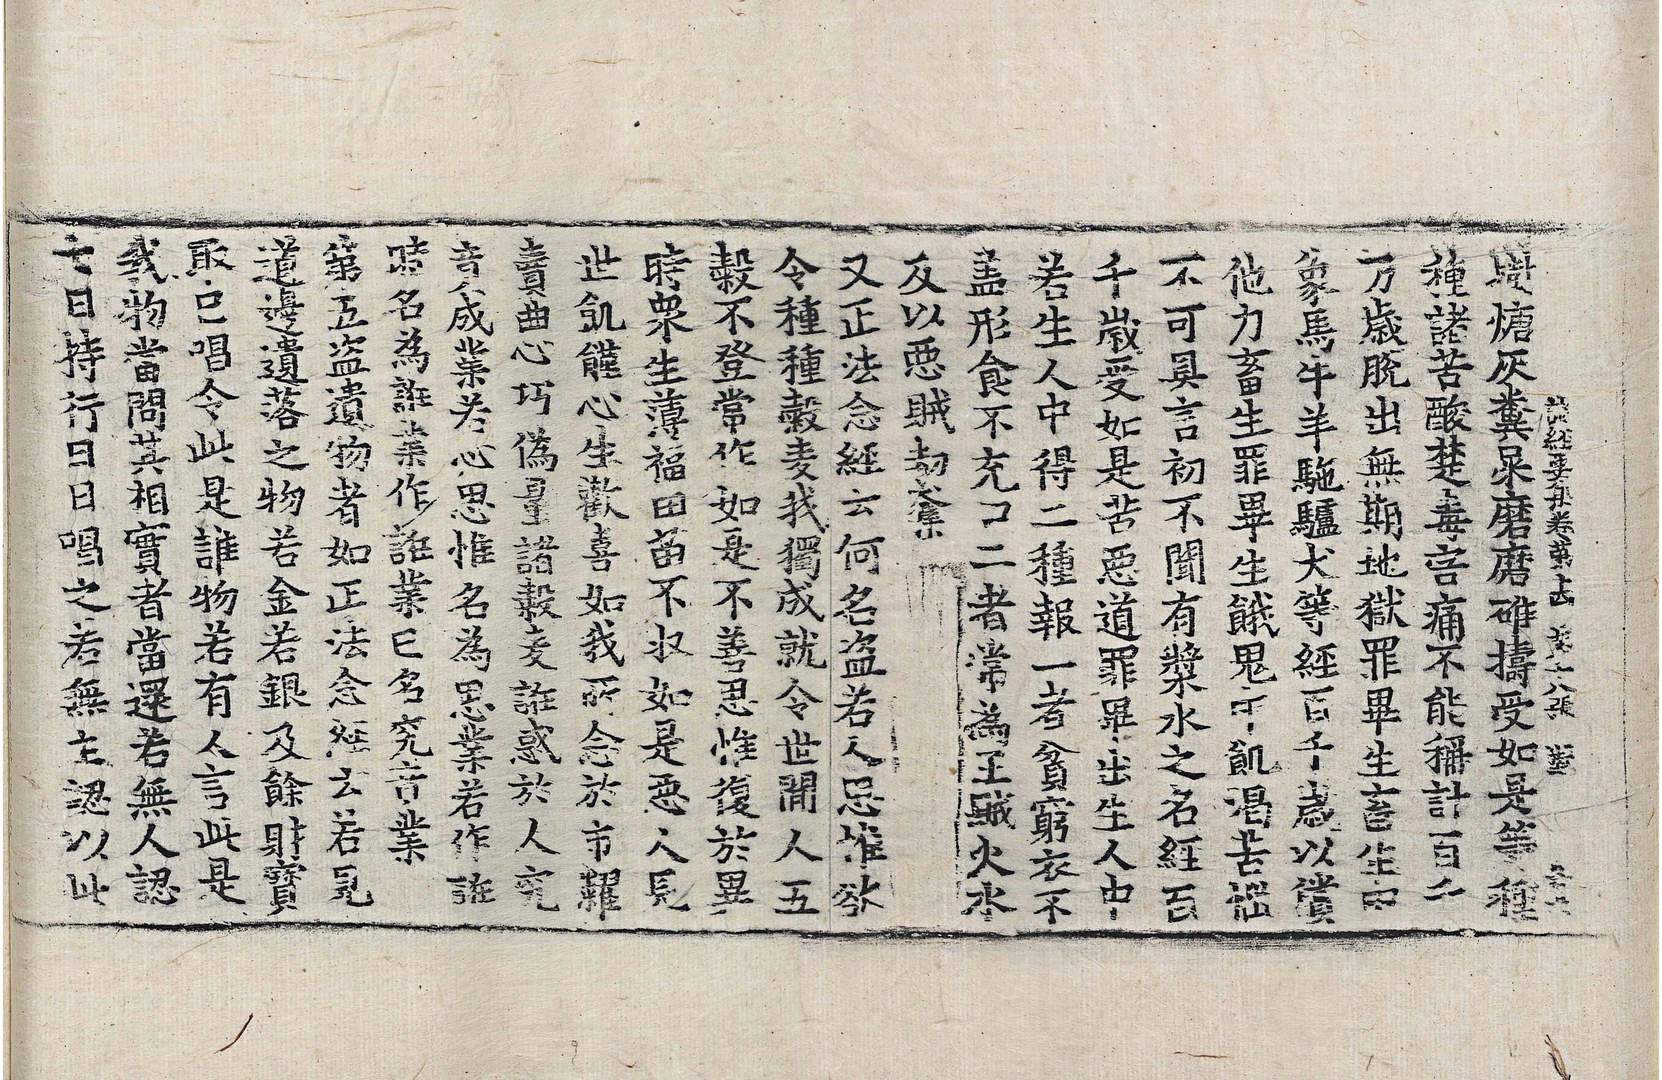 諸經要集卷第十四 第十八張 
爐煻灰糞屎磨磨碓擣受如是等種
種諸苦酸楚毒害痛不能稱計百千
万歲脫出無期地獄罪畢生畜生中
象馬牛羊駞驢犬等經百千歲以償
他力畜生罪畢生餓鬼中飢渴苦惱
不可具言初不聞有漿水之名經百
千歲受如是苦惡道罪畢出生人中
若生人中得二種報一者貧窮衣不
盖形食不充口二者常為王賊火水
及以惡賊劫奪
又正法念經云何名盜若人思惟欲
令種種穀麦我獨成就令世間人五
穀不登常作如是不善思惟復於異
時衆生薄福田苗不收如是惡人見
世飢饉心生歡喜如我所念於市糴
賣曲心巧偽量諸穀麦誑惑於人究
竟成業若心思惟名為思業若作誑
時名為誑業作誑業已名究竟業
第五盜遺物者如正法念經云若見
道邊遺落之物若金若銀及餘財寶
取已唱令此是誰物若有人言此是
我物當問其相實者當還若無人認
七日持行日日唱之若無主認以此